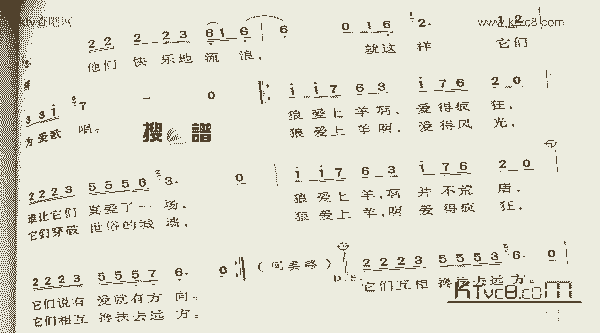 2 2 2 2 3 6 1 6 6 0 1 6 2. 1 2
他们 快乐地 流 浪, 就这 样 它们
3 3 i 7 - 0 i i 7 6 3 i 7 6 2 0
为爱歌 唱。 狼爱上羊啊, 爱得疯 狂,
搜 譜 狼爱上羊啊, 爱得风 光,
2 2 2 3 5 5 5 6 3. 0 i i 7 6 3 i 7 6 2 0
谁让它们 真爱了一 场。 狼爱上羊,啊 并不荒 唐,
它们穿破 世俗的城 墙。 狼爱上羊,啊 爱得疯 狂,
2 2 2 3 5 5 5 7 6. 0 (间奏略) 2 2 2 3 5 5 5 3 6. 0
它们说有 爱就有方 向。 D.S. 它们互相 搀扶去远 方。
它们相互 搀扶去远 方。
www.ktvc8.com
KTvc8.com